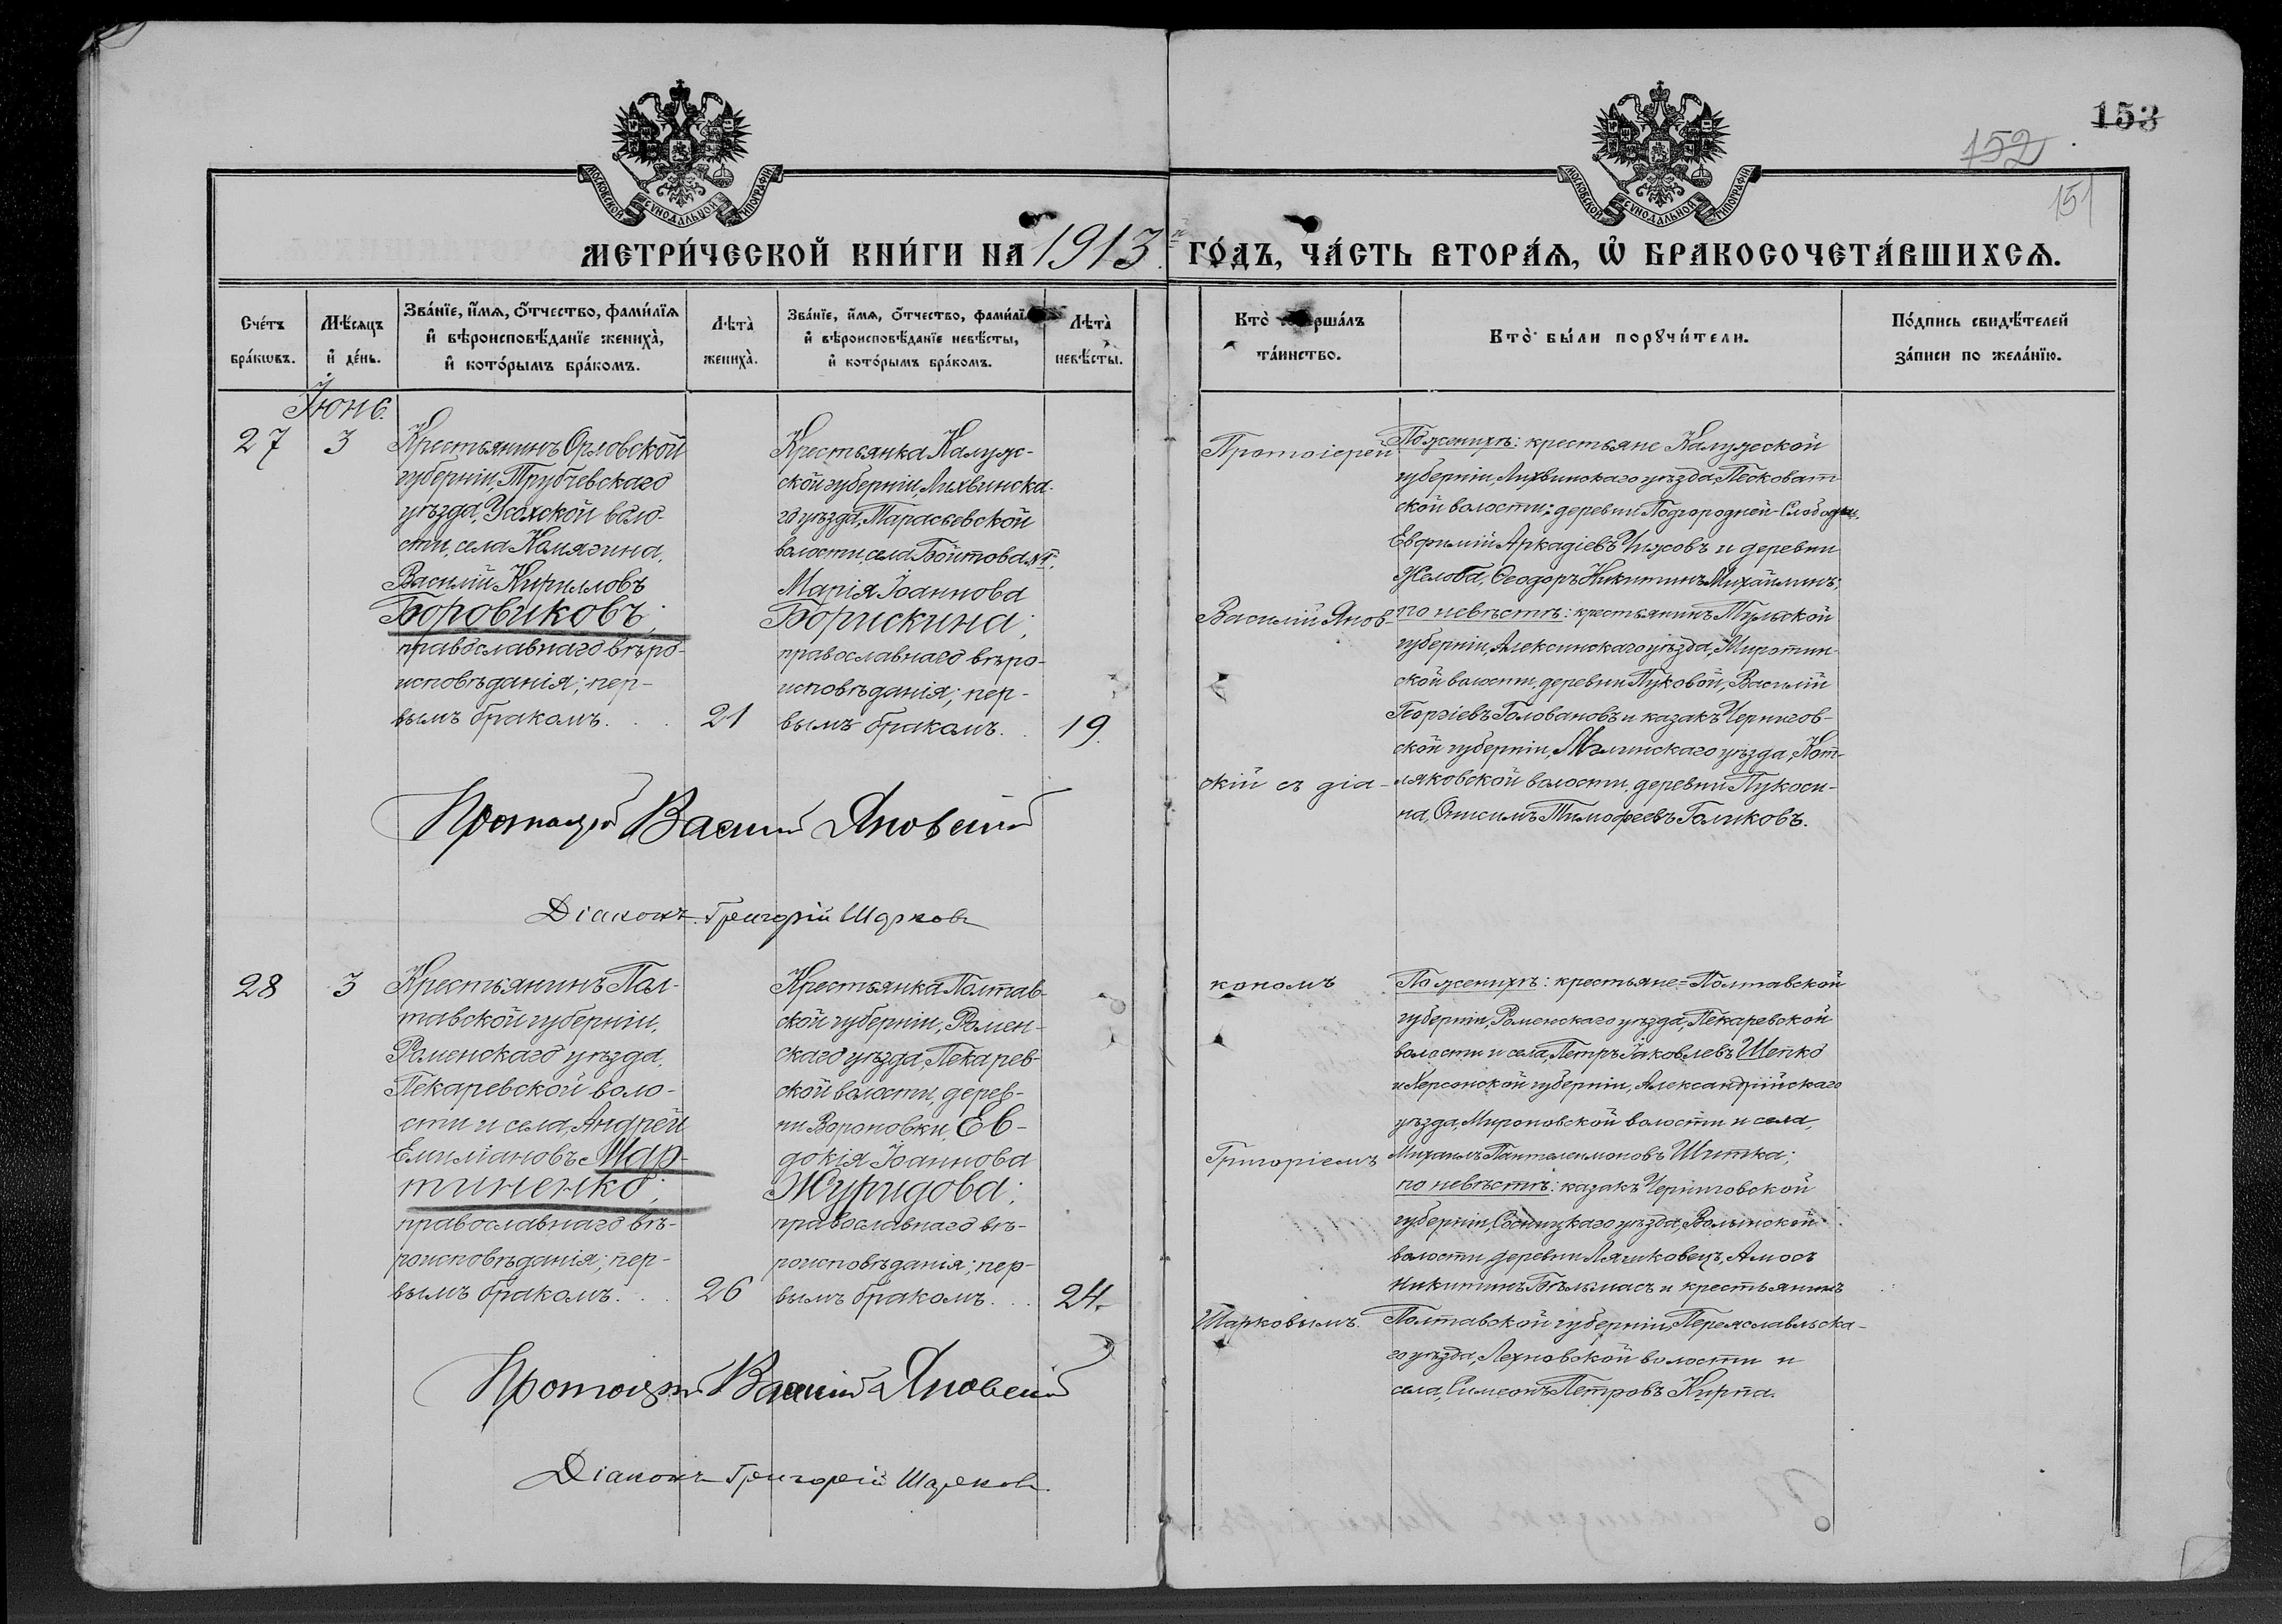 153
152
151
МОСКОВСКОЙ СѴНОДАЛЬНОЙ ТИПОГРАФІИ
МОСКОВСКОЙ СѴНОДАЛЬНОЙ ТИПОГРАФІИ
МЕТРИ́ЧЕСКОЙ КНИ́ГИ НА 1913 й ГО́ДЪ, ЧА́СТЬ ВТОРА́Ѧ, Ѽ БРАКОСОЧЕТА́ВШИХСѦ.
Сче́тъ бра́кѡвъ.
Мѣ́сѧцъ и҆ де́нь.
Зва́нїе, и҆́мѧ, ѻ҆́тчество, фами́лїѧ и҆ вѣроисповѣ́данїе жениха̀, и҆ кото́рымъ бра́комъ.
Лѣта̀ жениха̀.
Зва́нїе, и҆́мѧ, ѻ҆́тчество, фами́лї и҆ вѣроисповѣ́данїе невѣ́сты, и҆ кото́рымъ бра́комъ.
Лѣта̀ невѣ́сты.
Кто̀ ршалъ та́инство.
Кто̀ бы́ли порꙋчи́тели.
По́дпись свидѣ́телей за́писи по жела́нїю.
Іюнь.
27
3
Крестьянинъ Орловской
губерніи, Трубчевскаго
уѣзда, Усохской воло-
сти, села Комягина,
Василій Кирилловъ
Боровиковъ;
православнаго вѣро-
исповѣданія; пер-
вымъ бракомъ. . .
21
Крестьянка Калуж-
ской губерніи, Лихвинска-
го уѣзда, Тарасьевской
волости, села
Марія Іоаннова
Борискина;
православнаго вѣро-
исповѣданія; пер-
вымъ бракомъ. .
19.
Протоіерей
Василій Янов-
скій съ діа-
По женихѣ: крестьяне Калужской
губерніи, Лихвинскаго уѣзда, Песковат-
ской волости: деревни Подгородней-Слободы,
Евфимій Аркадіевъ Чижовъ и деревни
Желова, Ѳеодоръ Никитинъ Михайлинъ;
по невѣстѣ: крестьянинъ Тульской
губерніи, Алексинскаго уѣзда, Широтин-
ской волости, деревни Пуковой, Василій
Георгіевъ Головановъ и казакъ Чернигов-
ской губерніи, Мглинскаго уѣзда, Кот-
ляковской волости, деревни Пукоси-
на, Онисимъ Тимофеевъ Голиковъ.
Протоіерей Василій Яновскій
Діаконъ Григорій Шарковъ
28
3
Крестьянинъ Пол-
тавской губерніи,
Роменскаго уѣзда,
Пекаревской воло-
сти и села, Андрей
Емиліановъ Мар-
тиненко;
православнаго вѣ-
роисповѣданія; пер-
вымъ бракомъ. . .
26
Крестьянка Полтав-
ской губерніи, Ромен-
скаго уѣзда, Пекарев-
ской волости, дерев-
ни Вороновки, Ев-
докія Іоаннова
Журидова;
православнаго вѣ-
роисповѣданія; пер-
вымъ бракомъ. . .
24.
кономъ
Григоріемъ
Шарковымъ.
По женихѣ: крестьяне=Полтавской
губерніи, Роменскаго уѣзда, Пекаревской
волости и села, Петръ Іаковлевъ Шепко
и Херсонской губерніи, Александрійскаго
уѣзда, Мироновской волости и села,
Михаилъ Пантелеимоновъ Шитка;
по невѣстѣ: казакъ Черниговской
губерніи, Сосницкаго уѣзда, Волынской
волости, деревни Лячковецъ, Амосъ
Никитинъ Бѣльмасъ и крестьянинъ
Полтавской губерніи, Переяславльска-
го уѣзда, Лехновской волости и
села, Симеонъ Петровъ Кирпа.
Протоіерей Василій Яновскій
Діаконъ Григорій Шарковъ.